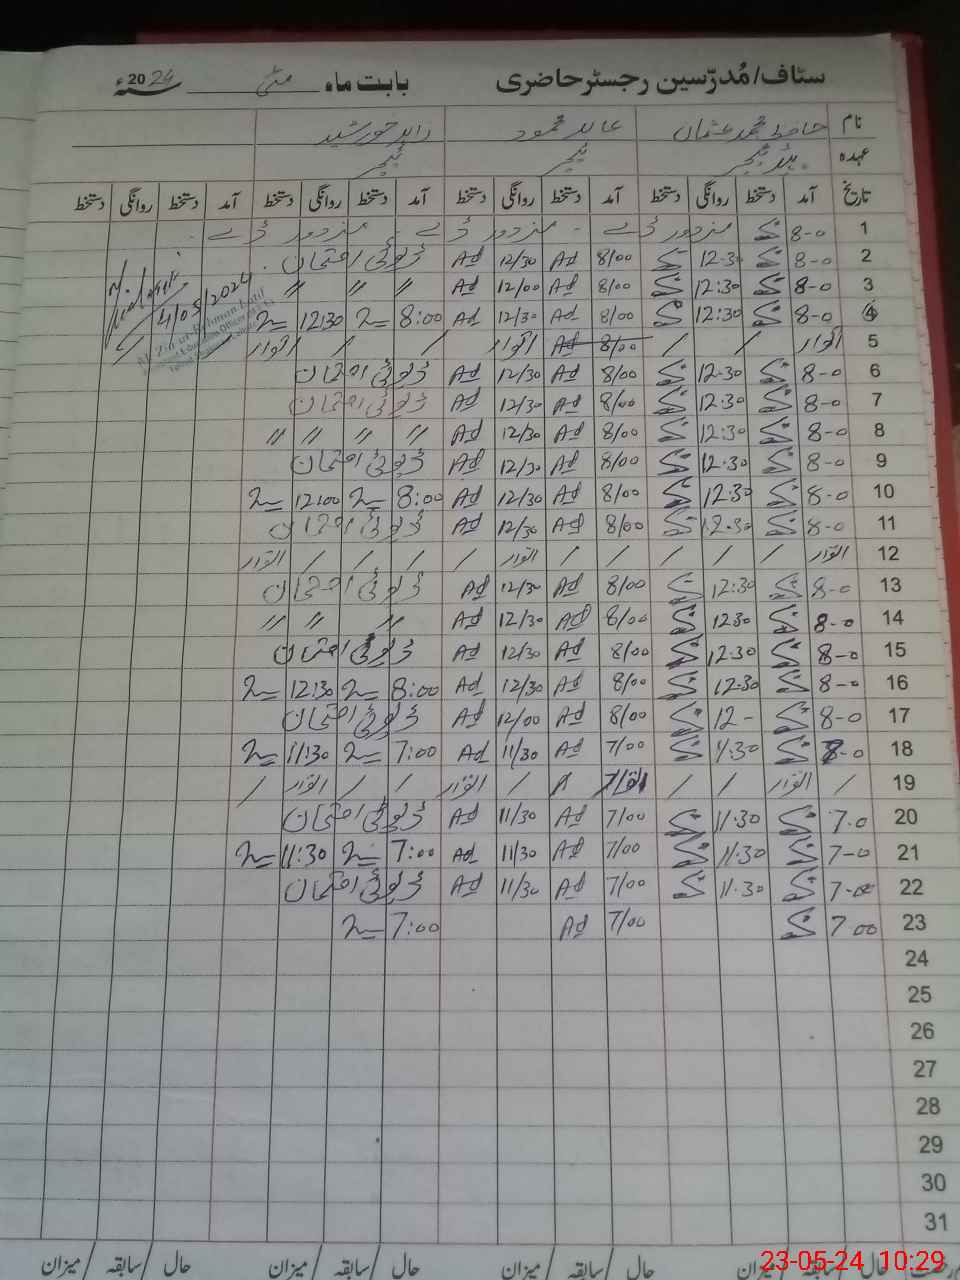 سٹاف/مُدرّسین رجسٹر حاضری بابت ماہ مئی سنہ 2024ء
نام حافظ محمد عثمان عابد محمود زاہد خورشید
عہدہ ہیڈ ٹیچر ٹیچر ٹیچر
تاریخ آمد دستخط روانگی دستخط آمد دستخط روانگی دستخط آمد دستخط روانگی دستخط آمد دستخط روانگی دستخط
1 8-0 مزدور ڈے - مزدور ڈے - مزدور ڈے
2 8-0 12:30 8/00 Ad 12/30 Ad ڈیوٹی امتحان
3 8-0 12:30 8/00 Ad 12/00 Ad " " "
4 8-0 12:30 8/00 Ad 12/30 Ad 8:00 12:30 4/05/2024
5 اتوار / / 8/00 Ad اتوار / / اتوار /
6 8-0 12.30 8/00 Ad 12/30 Ad ڈیوٹی امتحان
7 8-0 12:30 8/00 Ad 12/30 Ad ڈیوٹی امتحان
8 8-0 12:30 8/00 Ad 12/30 Ad " " " "
9 8-0 12.30 8/00 Ad 12/30 Ad ڈیوٹی امتحان
10 8-0 12:30 8/00 Ad 12/30 Ad 8:00 12:00
11 8-0 12.30 8/00 Ad 12/30 Ad ڈیوٹی امتحان
12 اتوار / / / / / اتوار / / / / اتوار
13 8-0 12:30 8/00 Ad 12/30 Ad ڈیوٹی امتحان
14 8-0 1230 8/00 Ad 12/30 Ad " " "
15 8-0 12.30 8/00 Ad 12/30 Ad ڈیوٹی امتحان
16 8-0 12.30 8/00 Ad 12/30 Ad 8:00 12:30
17 8-0 12- 8/00 Ad 12/00 Ad ڈیوٹی امتحان
18 8-0 11.30 7/00 Ad 11/30 Ad 7:00 11:30
19 / اتوار / / / اتوار / / اتوار /
20 7.0 11.30 7/00 Ad 11/30 Ad ڈیوٹی امتحان
21 7-0 11.30 7/00 Ad 11/30 Ad 7:00 11:30
22 7-00 11.30 7/00 Ad 11/30 Ad ڈیوٹی امتحان
23 7 00 7/00 Ad 7:00
24
25
26
27
28
29
30
31
حال / سابقہ / میزان حال / سابقہ / میزان حال / سابقہ / میزان حال / سابقہ / میزان
23-05-24 10:29